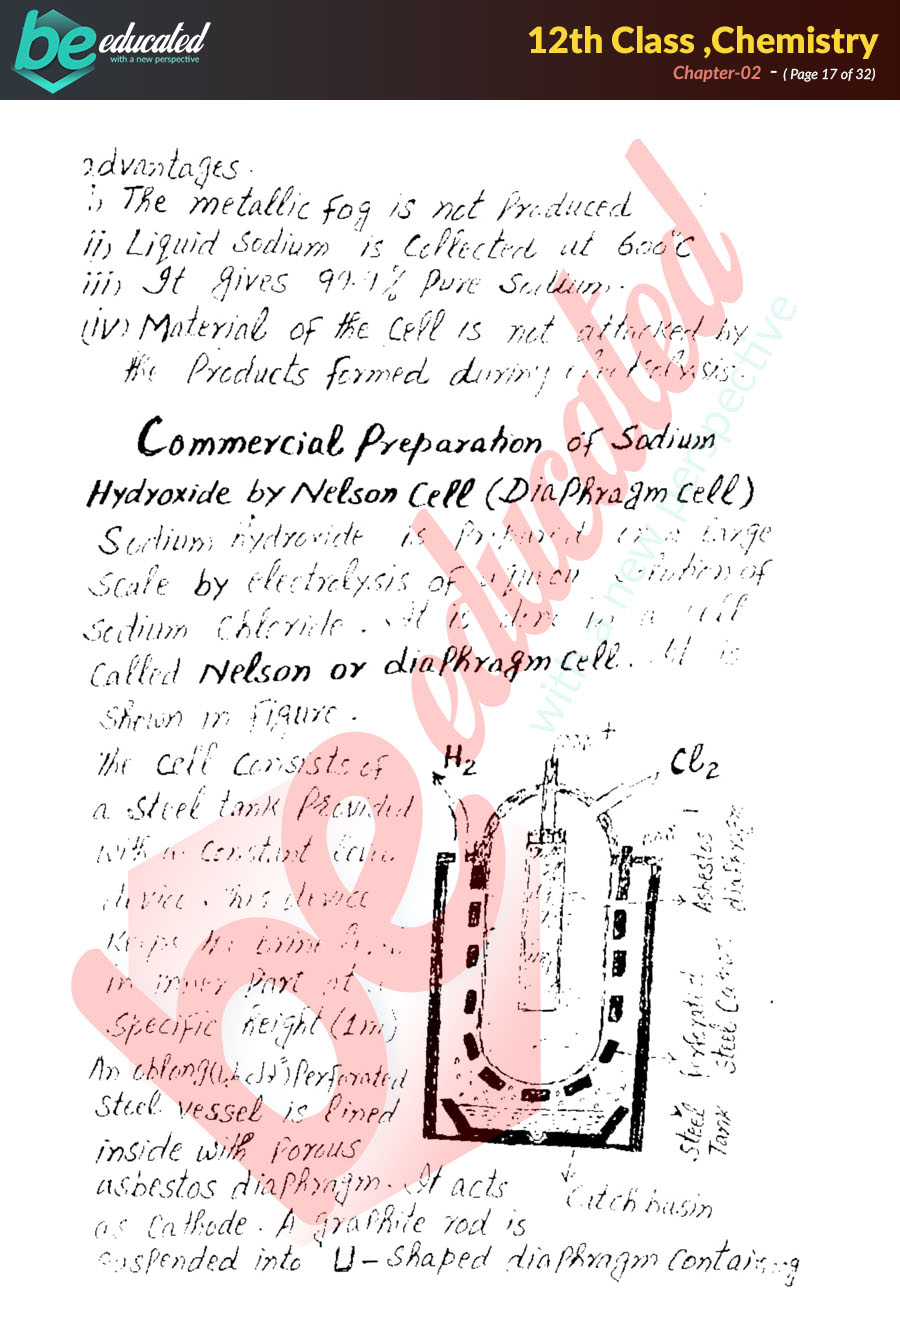 be educated
with a new perspective
12th Class ,Chemistry
Chapter-02 - ( Page 17 of 32)
advantages.
i) The metallic fog is not Produced
ii) Liquid Sodium is Collected at 600°C
iii) It gives 99.9% Pure Sodium.
(iv) Material of the Cell is not attacked by
the Products formed during electrolysis.
Commercial Preparation of Sodium
Hydroxide by Nelson Cell (Diaphragm Cell)
Sodium hydroxide is Prepared on a large
Scale by electrolysis of aqueous Solution of
Sodium Chloride. It is done in a Cell
Called Nelson or diaphragm Cell. It is
Shown in Figure.
The Cell Consists of
a Steel tank Provided
with a Constant level
device. This device
Keeps the brine level
in inner Part at a
Specific height (1m)
An oblong Perforated
Steel vessel is lined
inside with Porous
asbestos diaphragm. It acts
as Cathode. A graphite rod is
suspended into U-Shaped diaphragm Containing
H2
+
Cl2
Asbestos
diaphragm
Perforated
Steel
Steel
Tank
Catch basin
be educated
with a new perspective